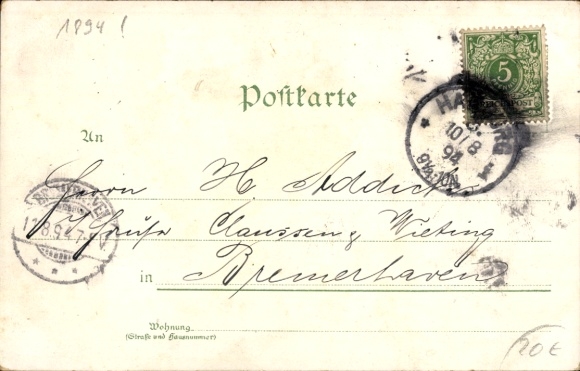 1894!
5
Postkarte
HAMBURG
10/8
94
8½-10N
An
Herrn H. Addicks
BREMERHAVEN
11.8.94.7-8
Claussen & Wieting
in Bremerhaven
Wohnung
(Straße und Hausnummer)
20€